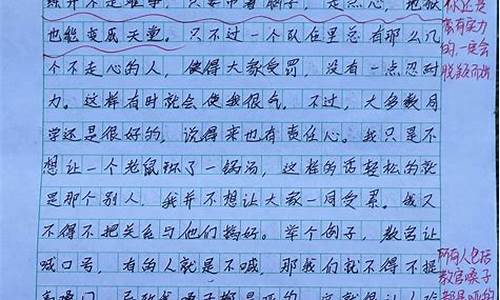 练并不是难事，只要带着脑子，走点心，地狱
也能变成天堂。只不过一个队伍里总有那么几
个不走心的人，使得大家受罚，没有一点忍耐
力。这样有时就会使我很气。不过，大多数同
学还是很好的，说得来也有责任心。我只是不
想让一个老鼠坏了一锅汤，这样的话轻松的就
是那个别人，我并不想让大家一同受累。我又
不得不把关系与他们搞好。举个例子，教官让
喊口号，有的人就是不喊，那我们就不得不提
高嗓门，
你还是
蛮有实力
的，一定会
脱颖而出
所有人包括
教官嗓子
都是哑的